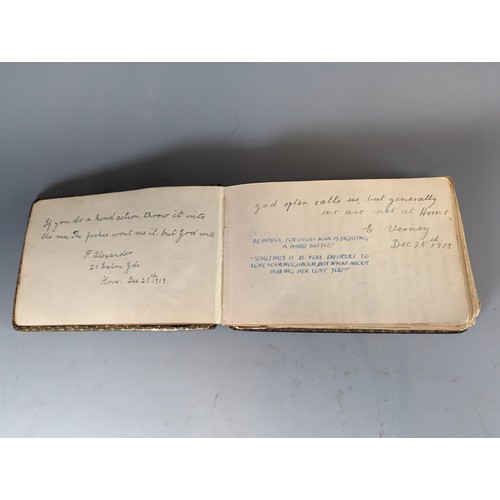 If you do a kind action, throw it into
the sea, The fishes wont see it, but God will
F Alexander
25 Eaton Gds
Hove. Dec 25th 1919.
God often calls us, but generally
we are not at Home.
E Verney
Dec 25th 1919
BE PITIFUL, FOR EVERY MAN IS FIGHTING
A HARD BATTLE"
"SOMETIMES IT IS VERY DIFFICULT TO
LOVE YOUR NEIGHBOUR, BUT WHAT ABOUT
MAKING HER LOVE YOU?"